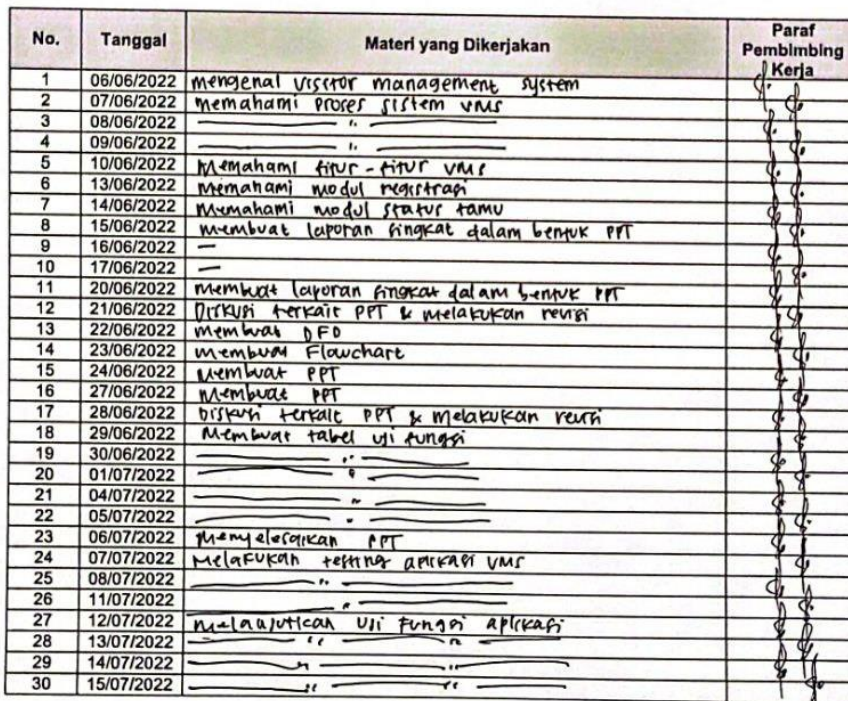 No. Tanggal Materi yang Dikerjakan Paraf Pembimbing Kerja
1 06/06/2022 mengenal visitor management system
2 07/06/2022 memahami proses sistem VMS
3 08/06/2022 — " —
4 09/06/2022 — " —
5 10/06/2022 Memahami fitur-fitur VMS
6 13/06/2022 Memahami modul registrasi
7 14/06/2022 Memahami modul status tamu
8 15/06/2022 membuat laporan singkat dalam bentuk PPT
9 16/06/2022 —
10 17/06/2022 —
11 20/06/2022 membuat laporan singkat dalam bentuk PPT
12 21/06/2022 Diskusi terkait PPT & melakukan revisi
13 22/06/2022 membuat DFD
14 23/06/2022 membuat Flowchart
15 24/06/2022 Membuat PPT
16 27/06/2022 Membuat PPT
17 28/06/2022 Diskusi terkait PPT & melakukan revisi
18 29/06/2022 Membuat tabel uji fungsi
19 30/06/2022 — " —
20 01/07/2022 — " —
21 04/07/2022 — " —
22 05/07/2022 — " —
23 06/07/2022 Menyelesaikan PPT
24 07/07/2022 Melakukan testing aplikasi VMS
25 08/07/2022 — " —
26 11/07/2022 — " —
27 12/07/2022 Melanjutkan uji fungsi aplikasi
28 13/07/2022 — " — " —
29 14/07/2022 — " — " —
30 15/07/2022 — " — " —